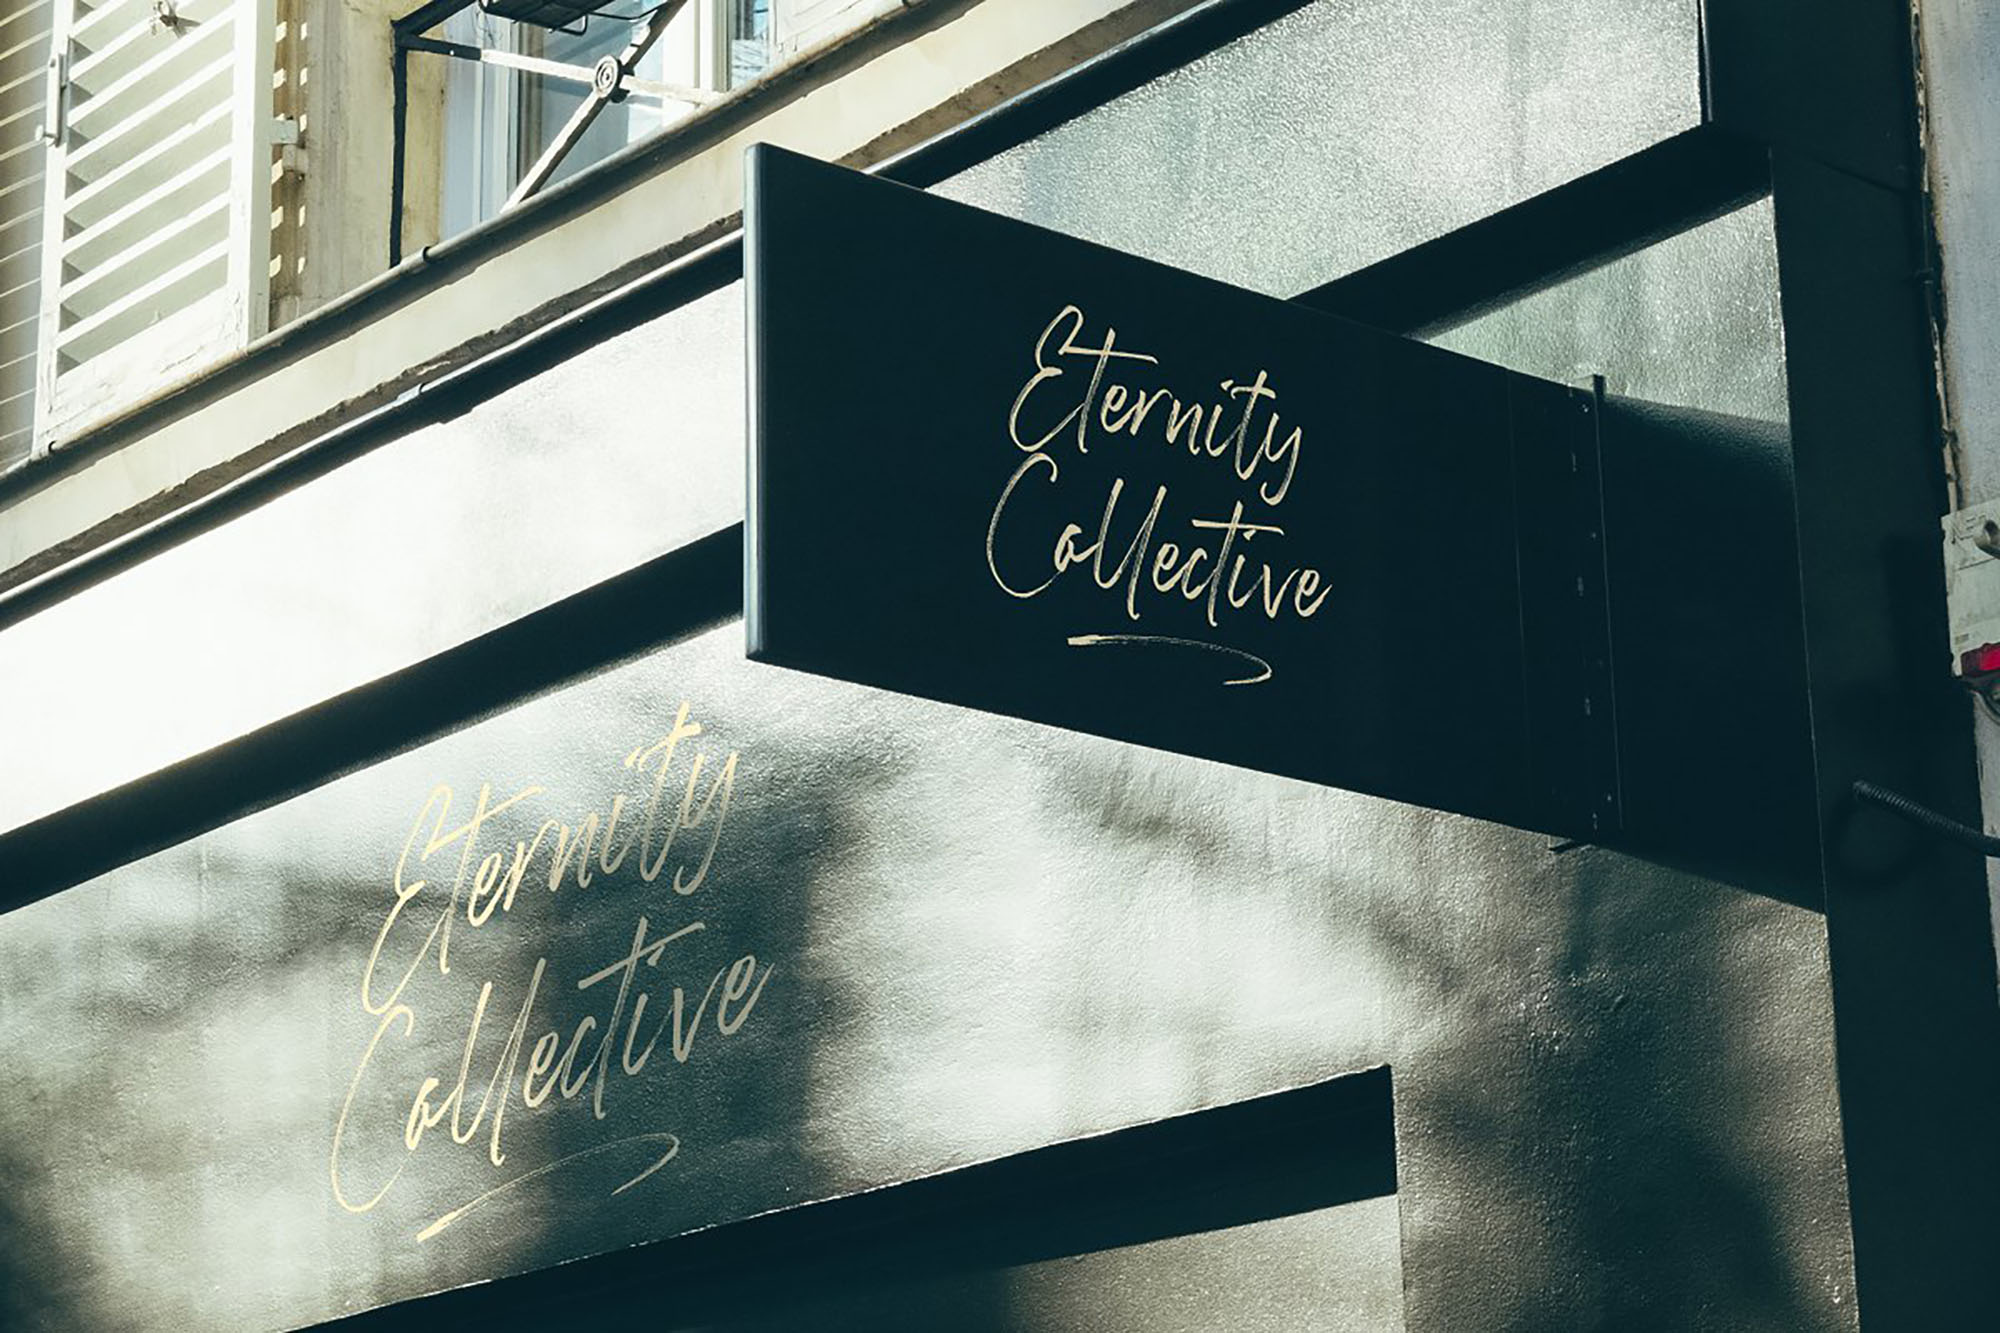 Eternity
Collective
Eternity
Collective